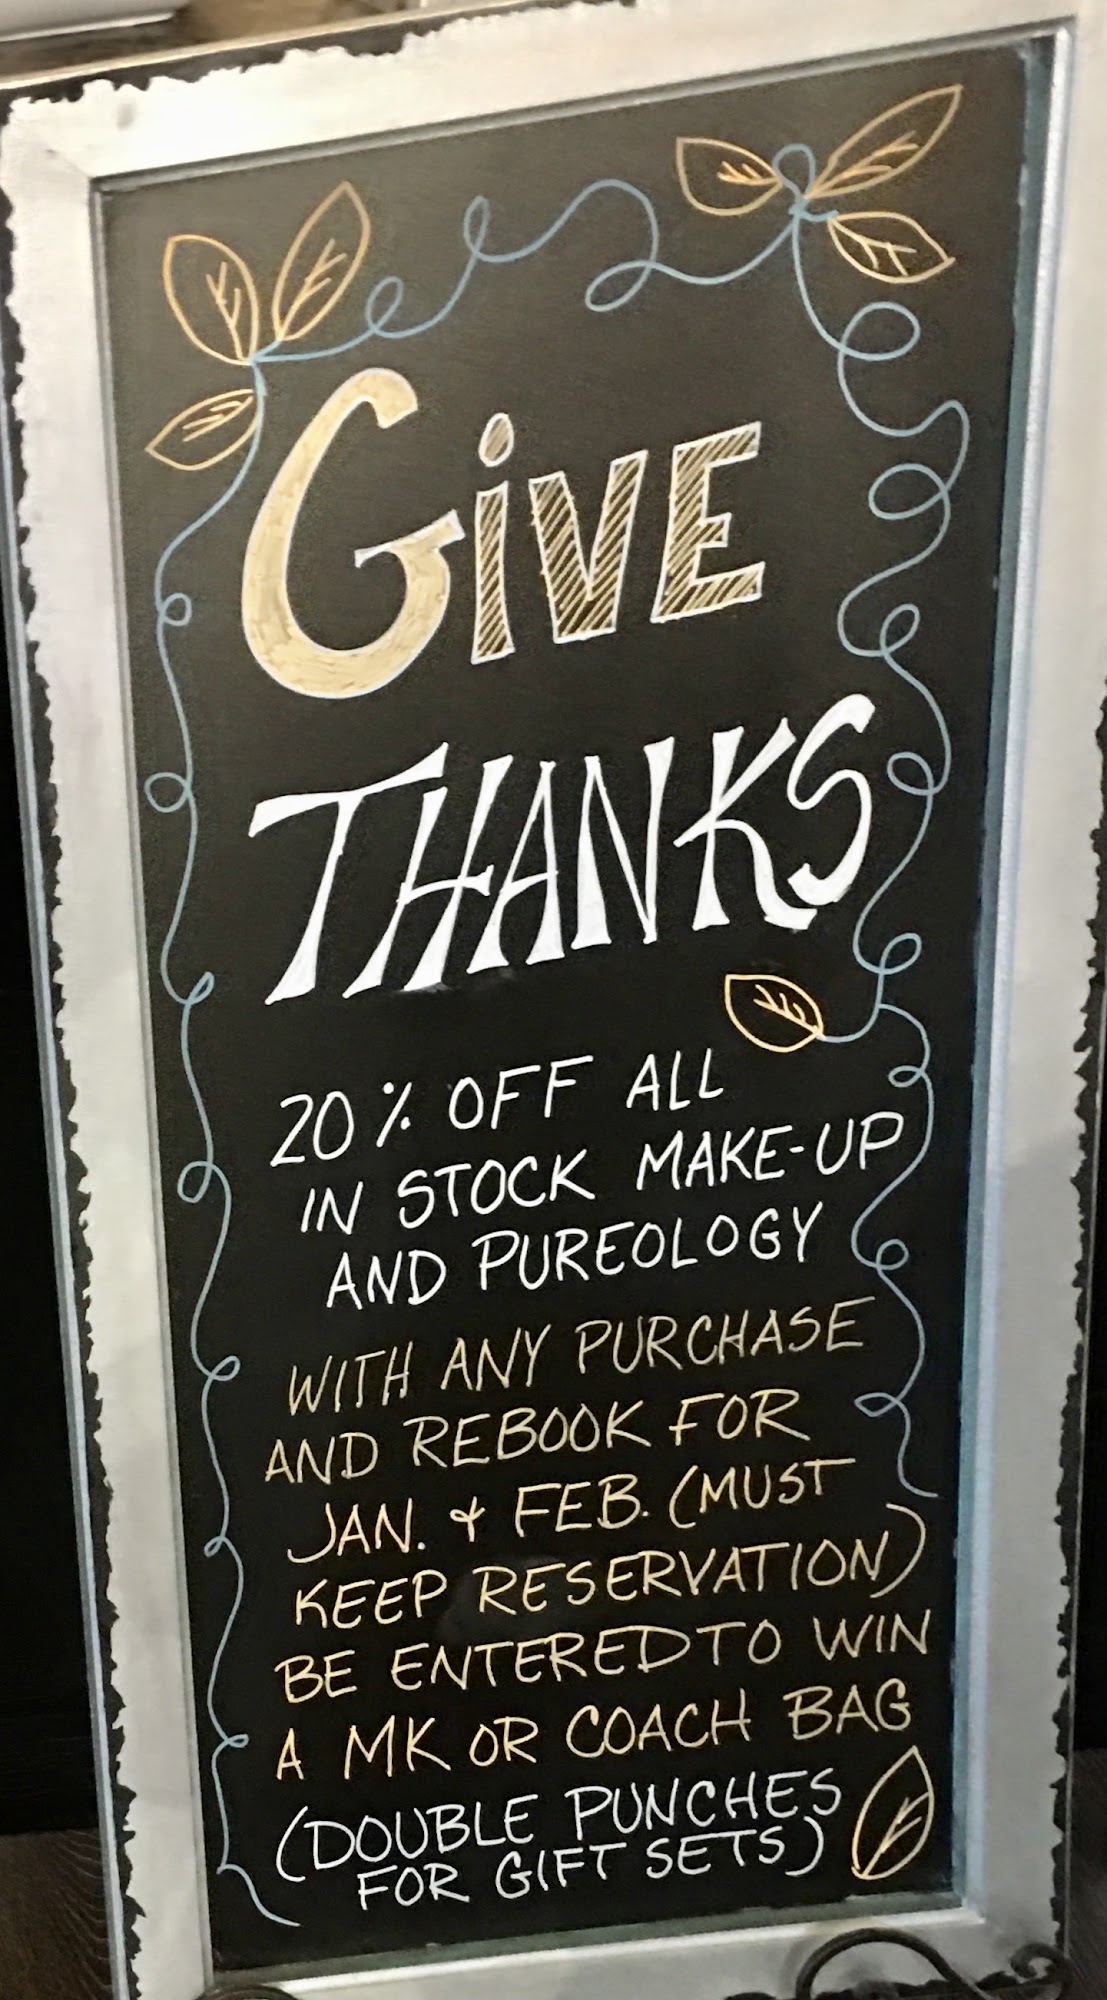 GiVE
THANKS
20% OFF ALL
IN STOCK MAKE-UP
AND PUREOLOGY
WITH ANY PURCHASE
AND REBOOK FOR
JAN. & FEB. (MUST
KEEP RESERVATION)
BE ENTERED TO WIN
A MK OR COACH BAG
(DOUBLE PUNCHES
FOR GIFT SETS)